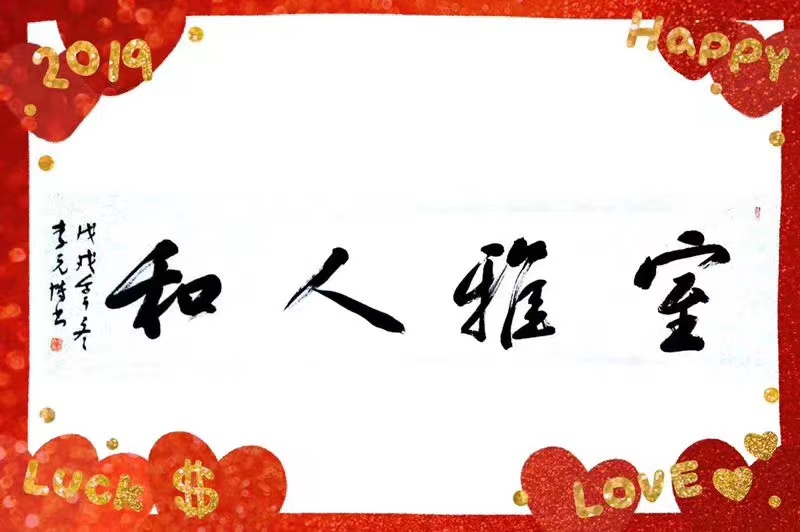 2019
Happy
室雅人和
戊戌
冬
李
书
LUCK $
LOVE